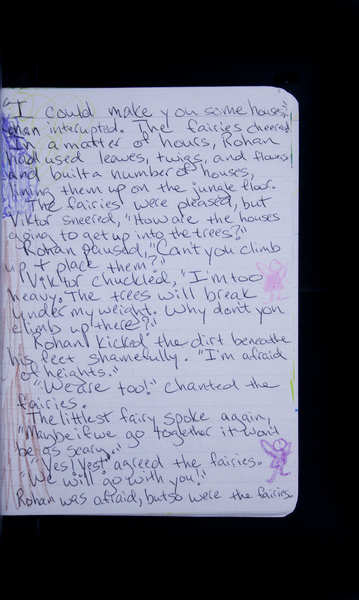 "I could make you some houses,"
Rohan interupted. The fairies cheered
In a matter of hours, Rohan
had used leaves, twigs, and flowers
and built a number of houses,
lining them up on the jungle floor.
The fairies were pleased, but
Viktor sneered, "How are the houses
going to get up into the trees?"
Rohan paused, "Can't you climb
up & place them?"
Viktor chuckled, "I'm too
heavy. The trees will break
under my weight. Why don't you
climb up there?"
Rohan kicked the dirt beneathe
his feet shamefully. "I'm afraid
of heights."
"We are too!" chanted the
fairies.
The littlest fairy spoke again,
"Maybe if we go together it won't
be as scary."
"Yes! Yes!" agreed the fairies.
"We will go with you!"
Rohan was afraid, but so were the fairies